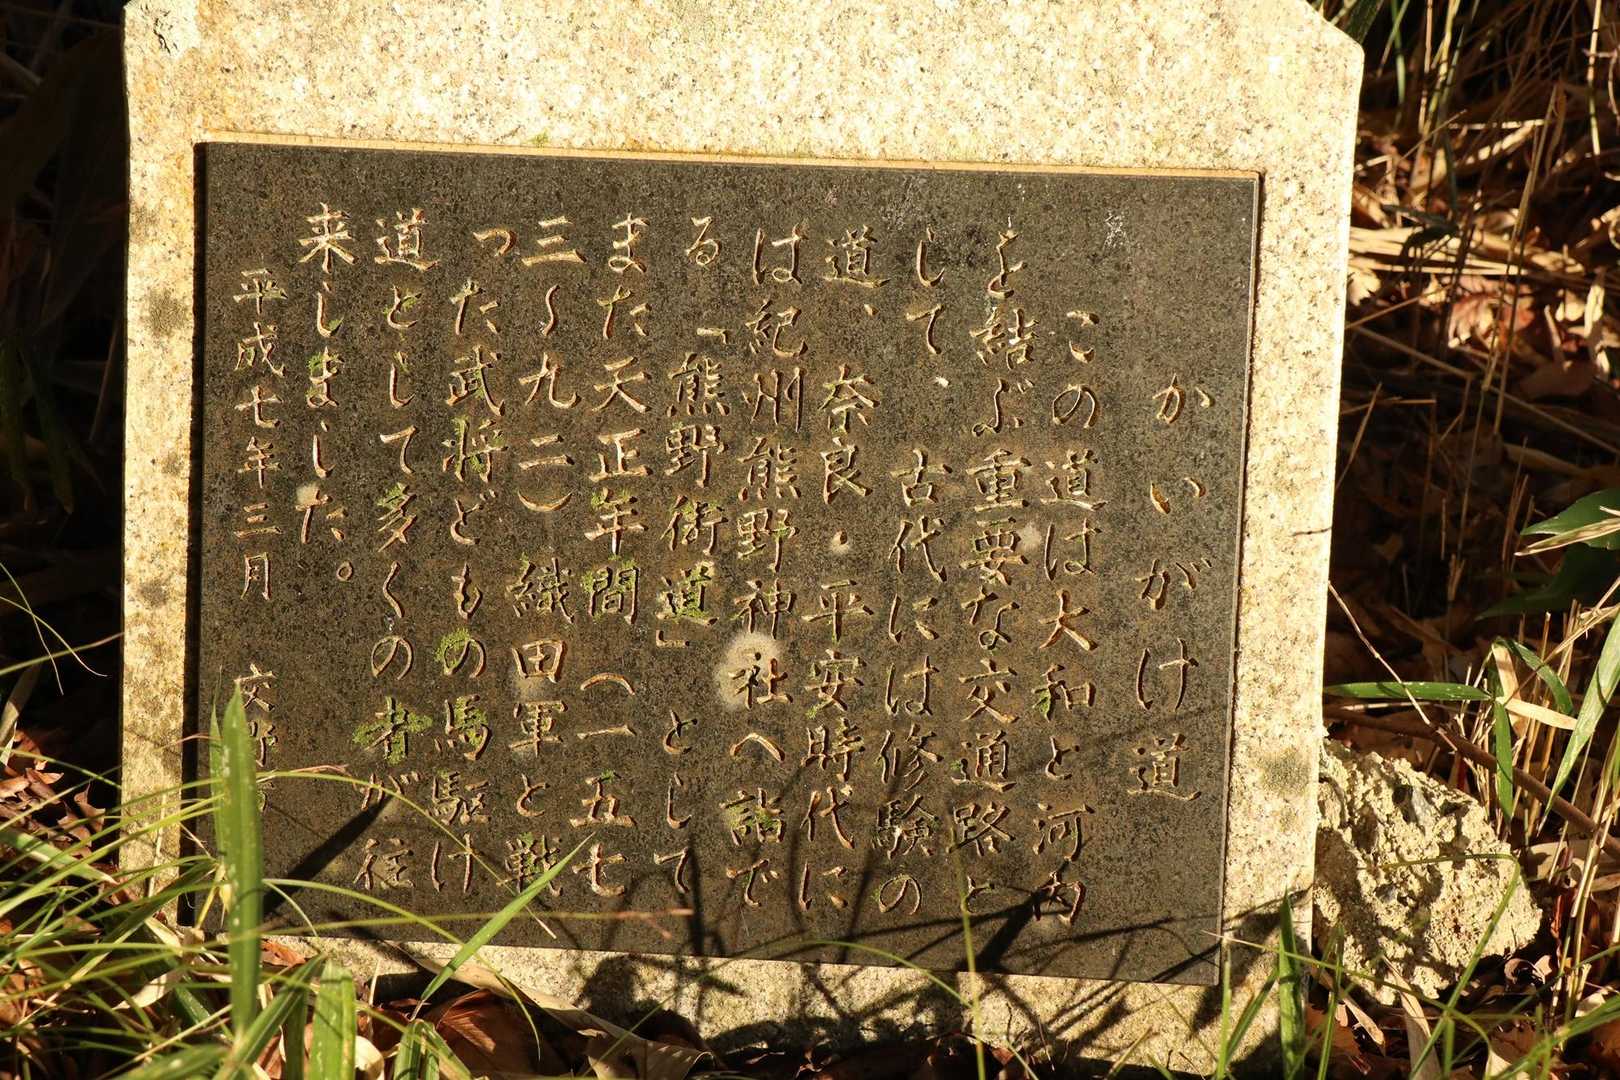 かいがけ道
この道は大和と河内
を結ぶ重要な交通路と
して、古代には修験の
道、奈良・平安時代に
は紀州熊野神社へ詣で
る「熊野街道」として
また天正年間（一五七
三～九二）織田軍と戦
った武将どもの馬駆け
道として多くの者が往
来しました。
平成七年三月　交野